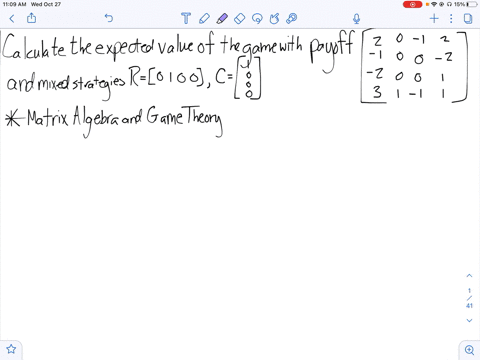 11:09 AM Wed Oct 27
15%
Calculate the expected value of the game with payoff [2 0 -1 2
-1 0 0 -2
-2 0 0 1
3 1 -1 1]
and mixed strategies R=[0 1 0 0], C=[1
0
0
0]
* Matrix Algebra and Game Theory
1
/
41